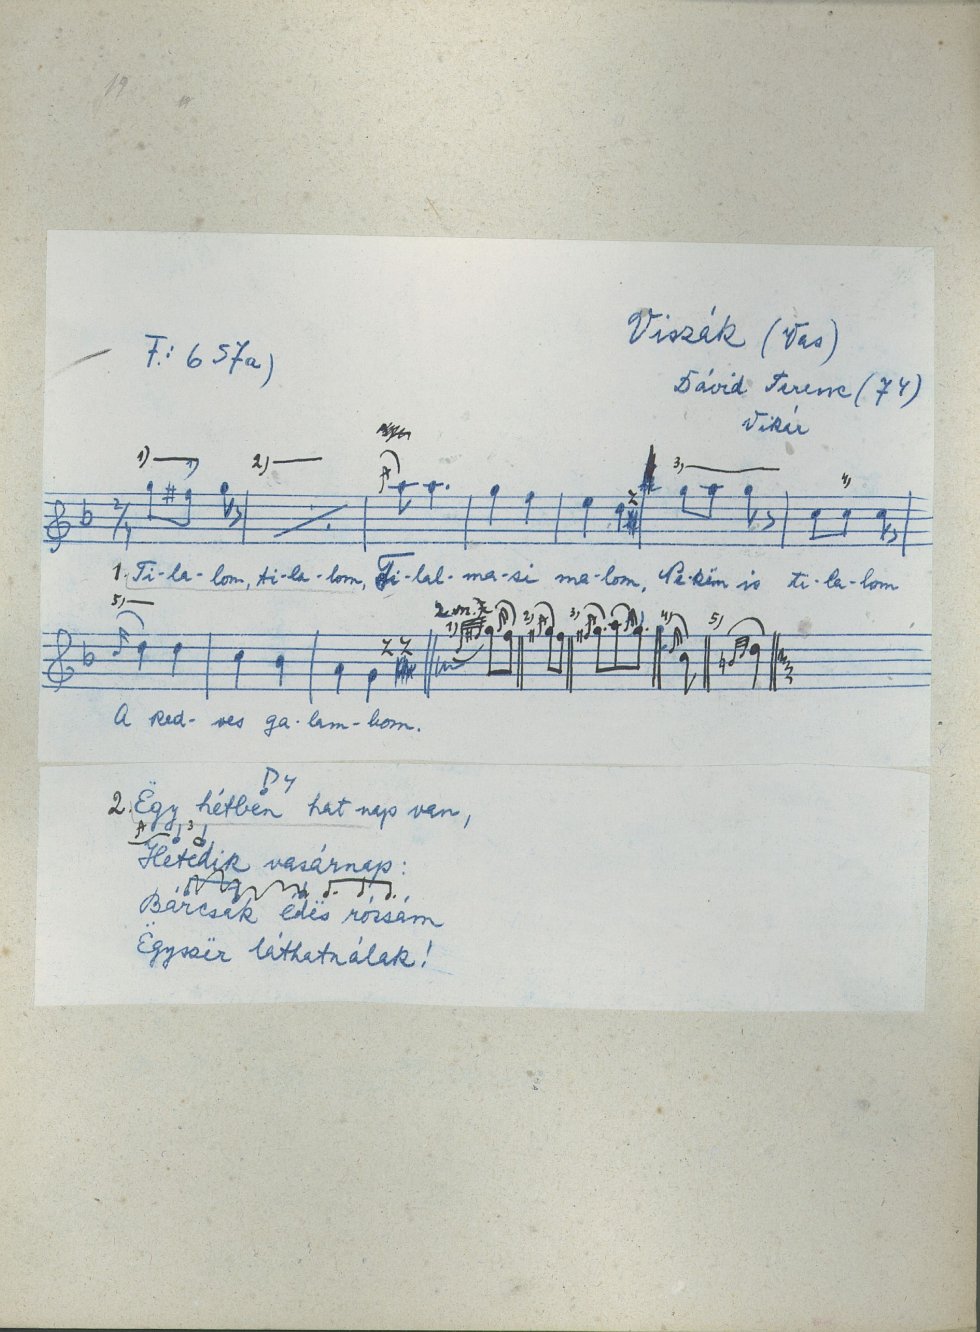 19
F.: 657a)
Viszák (Vas)
Dávid Ferenc (74)
Vikár
1) 2) 3) 4)
2/4
1. Ti-la-lom, ti-la-lom, Ti-lal-ma-si ma-lom, Né-këm is ti-la-lom
5)
2. m. 1) 2) 3) 4) 5)
A ked-ves ga-lam-bom.
2. Ëgy hétben hat nap van,
3
Hetedik vasárnap:
Bárcsak édës rózsám
Ëgyszër láthatnálak!